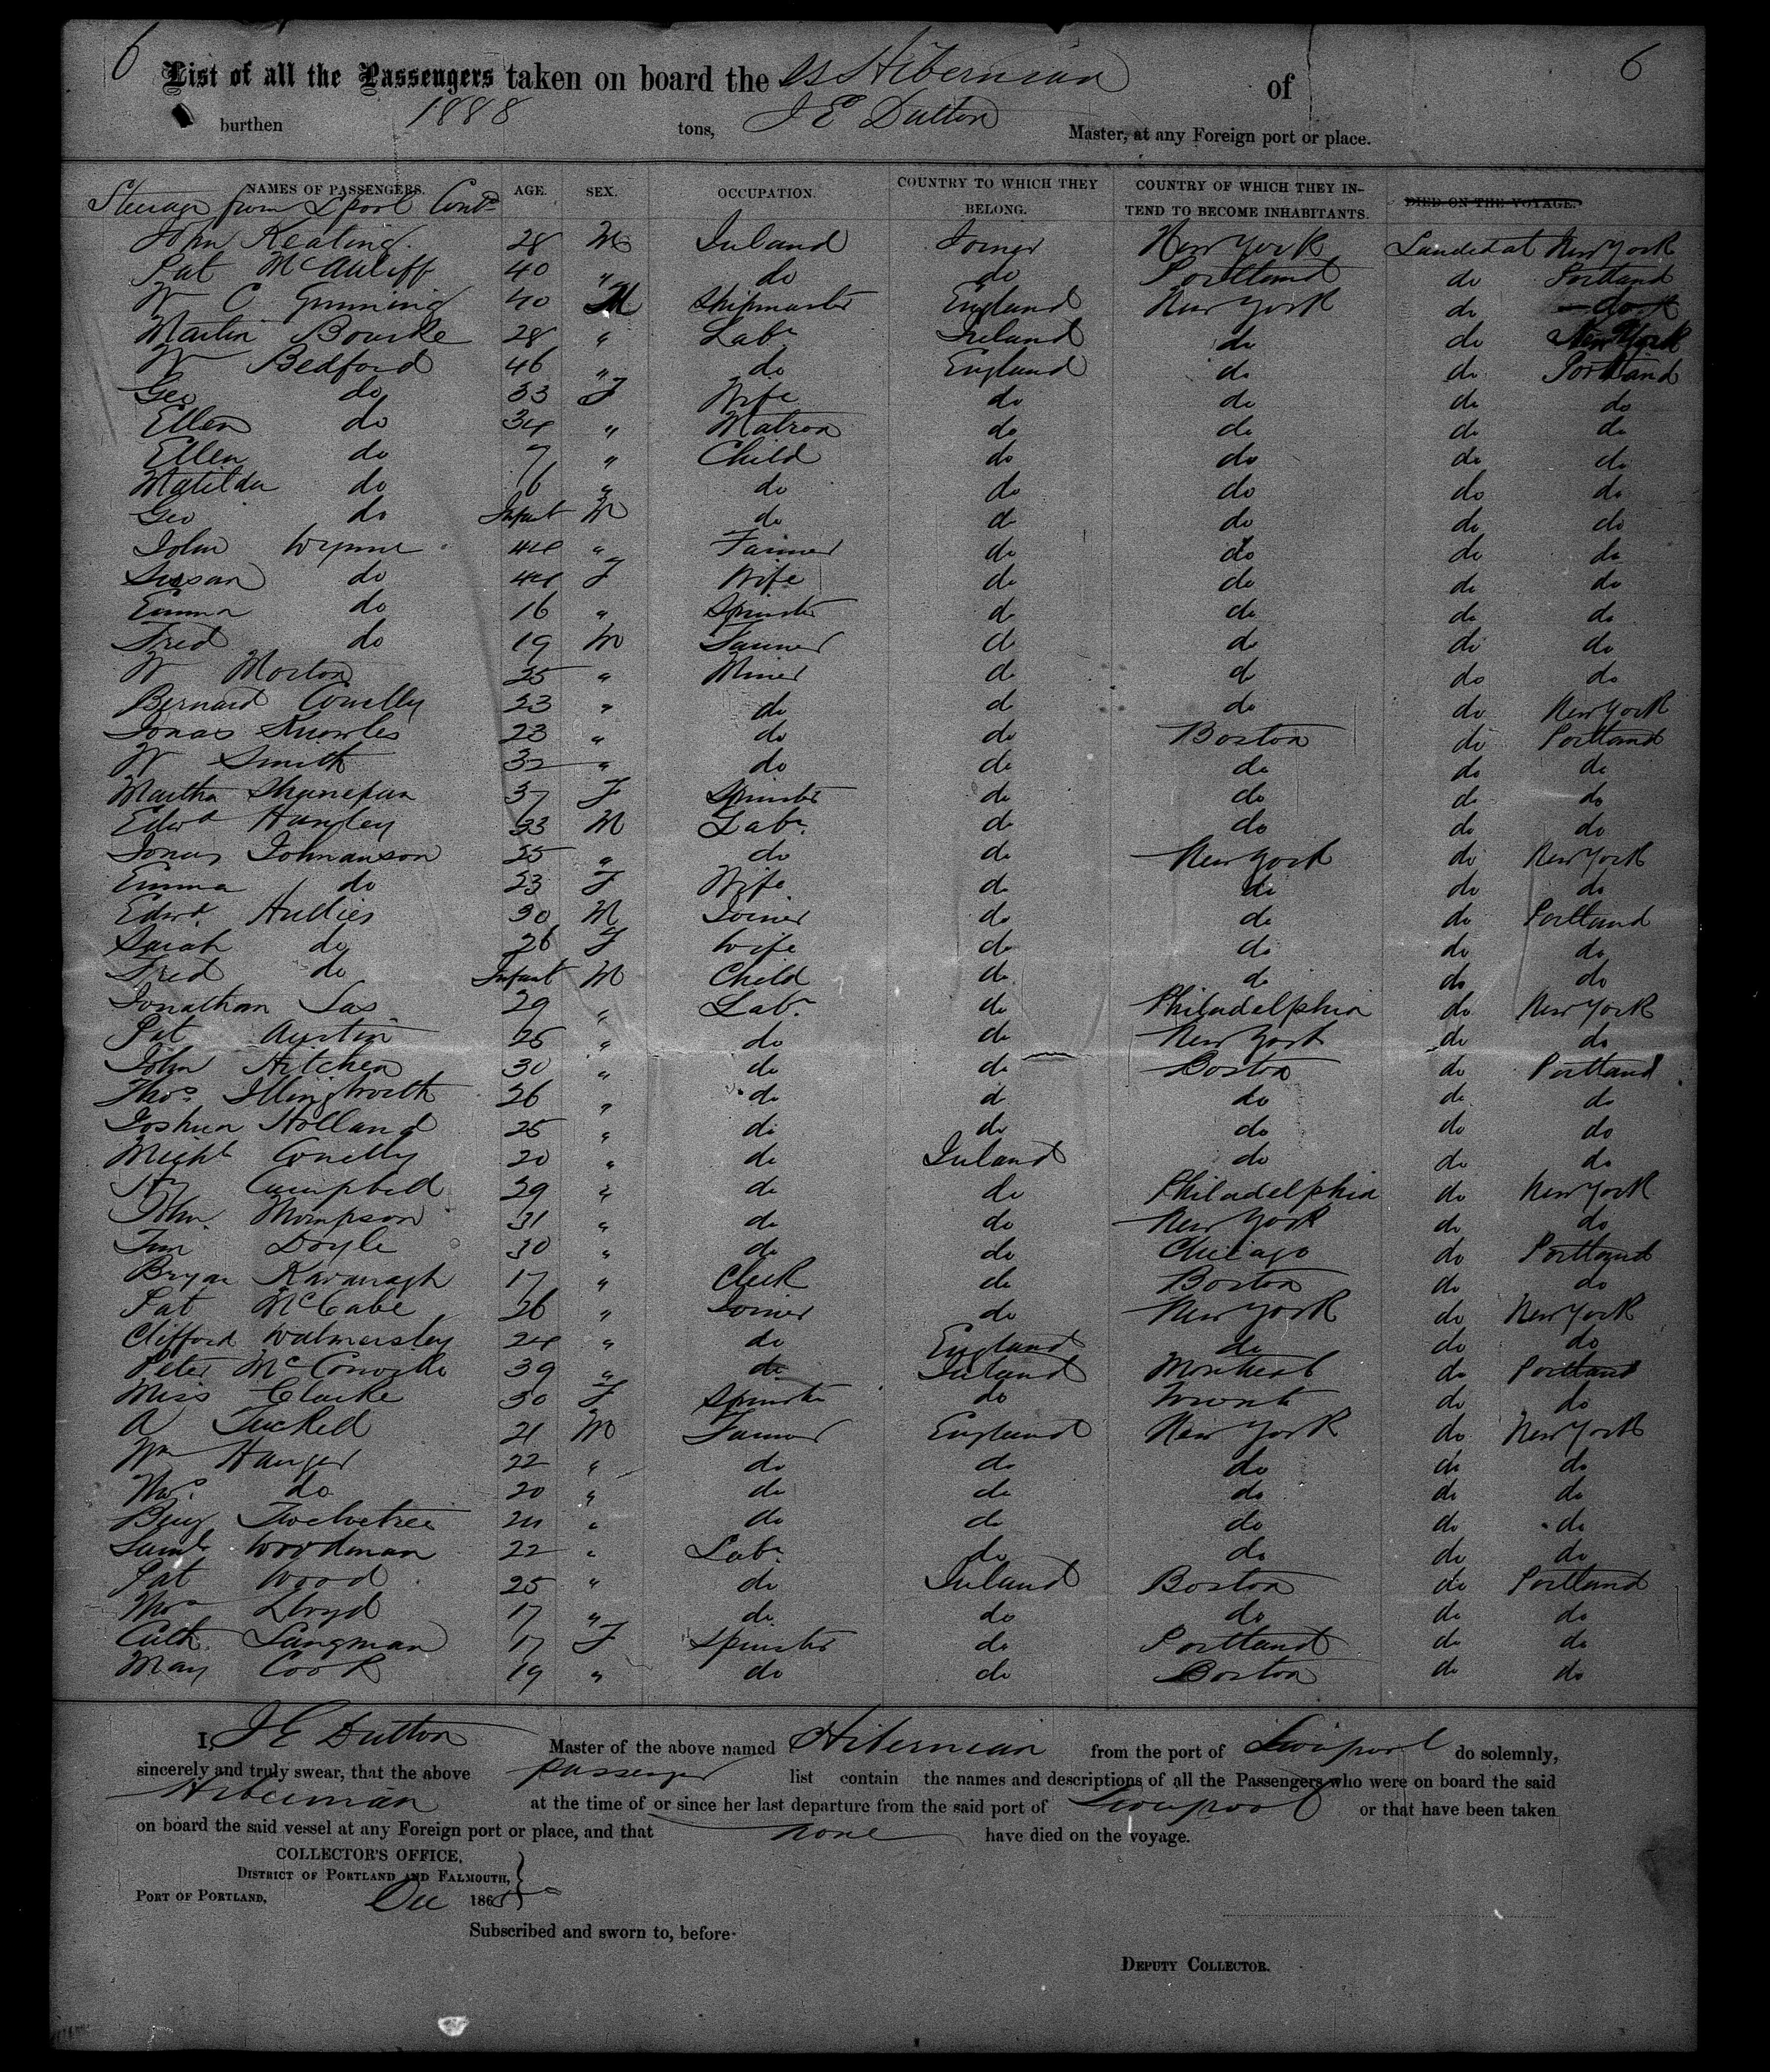 6 List of all the Passengers taken on board the SS Hibernian of 6
burthen 1888 tons, J E Dutton Master, at any Foreign port or place.
NAMES OF PASSENGERS. AGE. SEX. OCCUPATION. COUNTRY TO WHICH THEY BELONG. COUNTRY OF WHICH THEY INTEND TO BECOME INHABITANTS. DIED ON THE VOYAGE.
Steerage from L'pool Contd
John Keating 28 M Ireland Joiner New York Landed at New York
Pat McAuliff 40 " do do Portland do Portland
W C Gunning 40 M Shipmaster England New York do
Martin Bourke 28 " Labr Ireland do do New York
W Bedford 46 " do England do do Portland
Geo do 33 F Wife do do do do
Ellen do 34 " Matron do do do do
Ellen do 7 " Child do do do do
Matilda do 6 " do do do do do
Geo do Infant M do do do do do
John Wynne 44 " Farmer do do do do
Sussan do 44 F Wife do do do do
Emma do 16 " Spinster do do do do
Fred do 19 M Farmer do do do do
W Morton 25 " Miner do do do do
Bernard Conelly 23 " do do do do New York
Jonas Knowles 23 " do do Boston do Portland
W Smith 32 " do do do do do
Martha 37 F Spinster do do do do
Edwd Hanley 33 M Labr. do do do do
Jonas Johnanson 25 " do do New York do New York
Emma do 23 F Wife do do do do
Edwd. 30 M Joiner do do do Portland
Sarah do 26 F Wife do do do do
Fred do Infant M Child do do do do
Jonathan Las 29 " Labr do Philadelphia do New York
Pat Austin 25 " do do New York do do
John Aitchen 30 " do do Boston do Portland
Thos. Illingworth 26 " do do do do do
Joshua Holland 25 " do do do do do
Michl Conelly 20 " do Ireland do do do
Campbell 29 " do do Philadelphia do New York
John Thompson 31 " do do New York do do
Jim Doyle 30 " do do Chicago do Portland
Bryan Kavanagh 17 " Clerk do Boston do do
Pat McCabe 26 " Joiner do New York do New York
Clifford Walmersley 24 " do England do do do
Peter McConville 39 " do Ireland Montreal do Portland
Miss Clarke 30 F Spinster do do do
A Tuckell 21 M Farmer England New York do New York
Wm Hanger 22 " do do do do do
do 20 " do do do do do
Benj Twelvetree 24 " do do do do do
Saml Woodman 22 " Labr. do do do do
Pat Wood 25 " do Ireland Boston do Portland
Thos Lloyd 17 " do do do do do
Cath. Langman 17 F Spinster do Portland do do
May Cook 19 " do do Boston do do
I, J E Dutton Master of the above named Hibernian from the port of Liverpool do solemnly,
sincerely and truly swear, that the above passenger list contain the names and descriptions of all the Passengers who were on board the said
Hibernian at the time of or since her last departure from the said port of Liverpool or that have been taken
on board the said vessel at any Foreign port or place, and that none have died on the voyage.
COLLECTOR'S OFFICE,
DISTRICT OF PORTLAND AND FALMOUTH,
PORT OF PORTLAND, Dec 1865
Subscribed and sworn to, before
DEPUTY COLLECTOR.